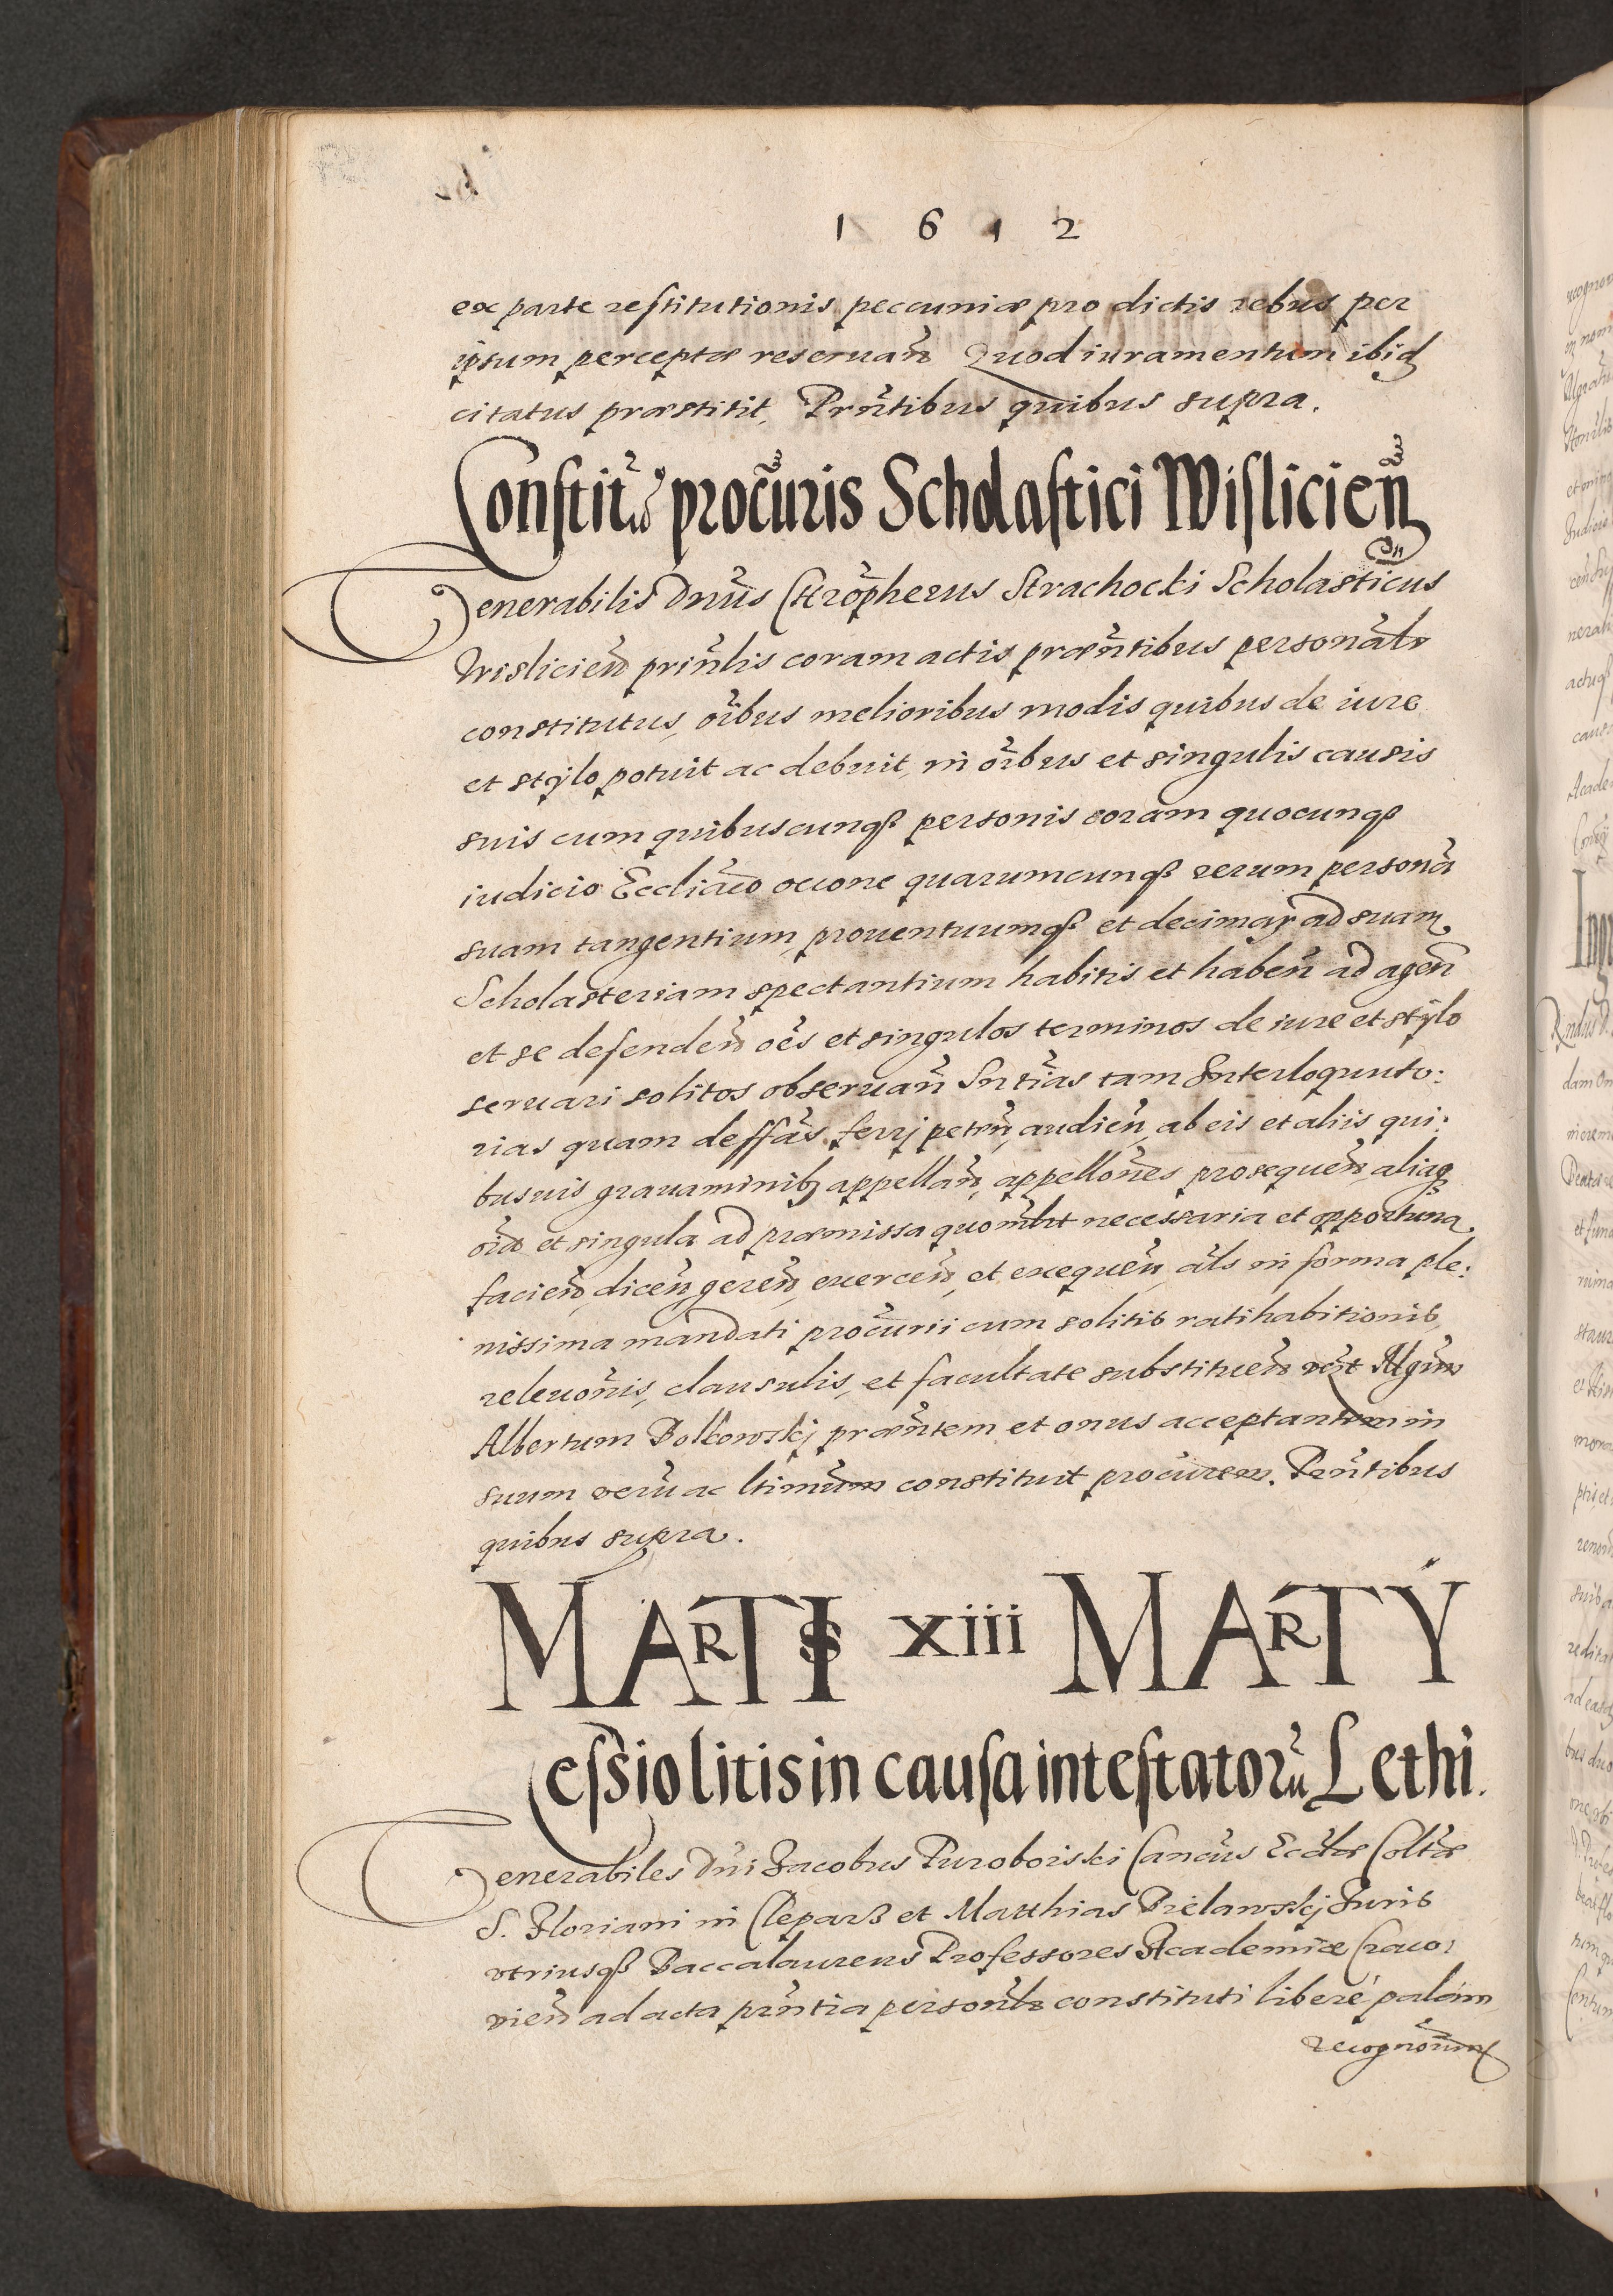 1 6 1 2
ex parte restitutionis peccuniæ pro dictis rebus per
ipsum perceptæ reseruañ Quod iuramentum ibid
citatus præstitit, Prñtibus quibus supra.
Constitũo procũris Scholastici Wislicieñ
Venerabilis Dñus Chrõpherus Strachocki Scholasticus
Wislicieñ prinĩlis coram actis præñtibus personalr
constitutus, oĩbus melioribus modis quibus de iure
et stÿlo potuit ac debuit, in oĩbus et singulis causis
suis cum quibuscunqȝ personis coram quocunqȝ
iudicio Ecclĩaco occone quarumcunqȝ rerum personã
suam tangentium, prouentuumqȝ et decimaꝝ ad suam
Scholasteriam spectantium habitis et habeñ ad ageñ
et se defendeñ oẽs et singulos terminos de iure et stÿlo
seruari solitos obseruañ Sntĩas tam Interloquuto:
rias quam deffãs ferrj peteñ, audieñ, ab eis et aliis qui:
busuis grauaminibȝ appellañ, appellõnes prosequeñ, aliaqȝ
oĩa et singula ad præmissa quomlt necessaria et opportuna
facieñ, diceñ, gereñ, exerceñ, et exequeñ, als in forma ple:
nissima mandati procũrii cum solitis ratihabitionis,
releuõnis, clausulis, et facultate substitueñ Mgrm
Albertum Bolkowskj præñtem et onus acceptantem in
suum verũ ac ltimum constituit procũrem. Prñtibus
quibus supra.
MARTIS xiii MARTŸ
Cessio litis in causa intestatorũ Lethi.
Venerabiles Dñi Jacobus Turoboiski Cancũs Ecclæ Collæ
S. Floriani in Clepars et Matthias Prelawskj Juris
vtriusqȝ Baccalaureus Professores Academiæ Craco:
vieñ ad acta prñtia personlr constituti liberè palàm
recognõuerũt